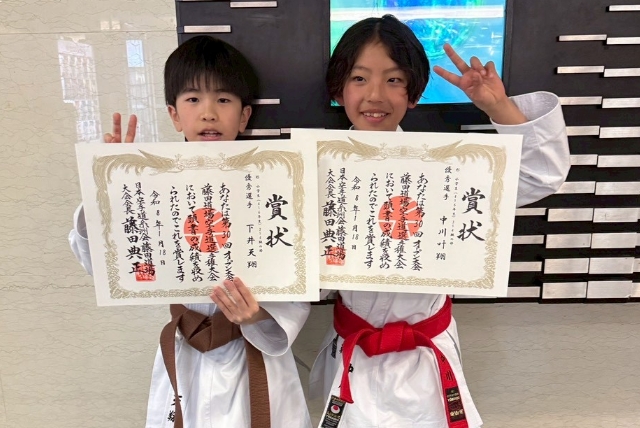 賞状
優秀選手
下井天翔
あなたは第30回オープン大会
藤田道場空手道選手権大会
において頭書の成績を収め
られたのでこれを賞します
令和8年1月18日
日本空手道糸州会藤田道場
大会会長 藤田典正
賞状
優秀選手
中川叶翔
あなたは第30回オープン大会
藤田道場空手道選手権大会
において頭書の成績を収め
られたのでこれを賞します
令和8年1月18日
日本空手道糸州会藤田道場
大会会長 藤田典正